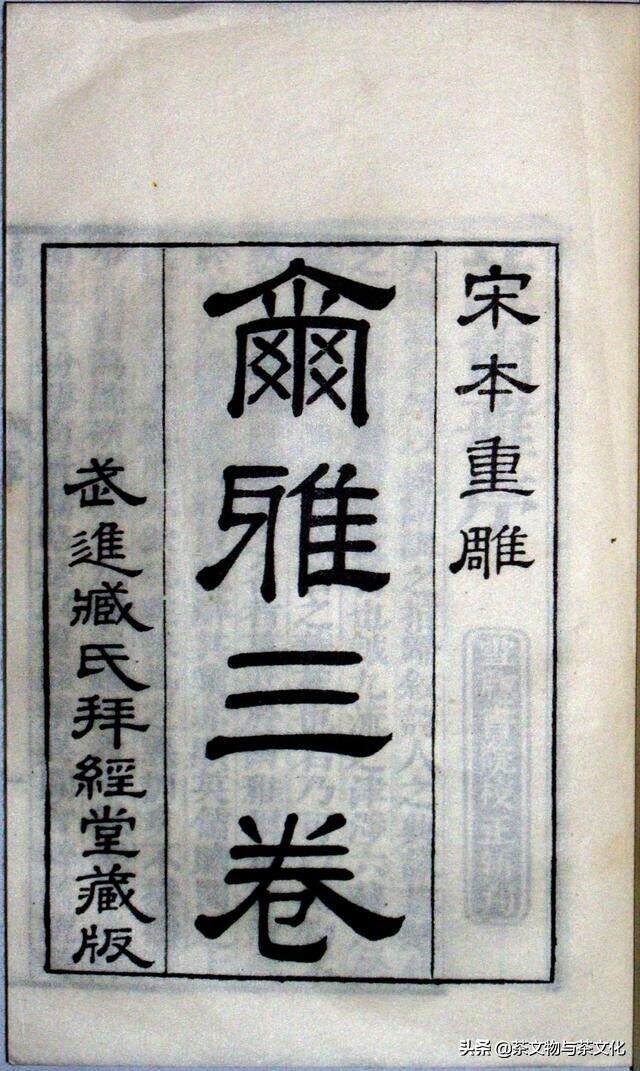 宋本重雕
爾雅三卷
武進臧氏拜經堂藏版
头条 @茶文物与茶文化